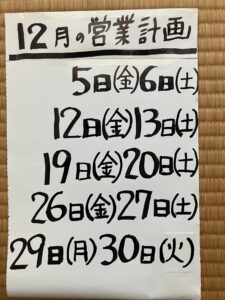 12月の営業計画
5日(金)6日(土)
12日(金)13日(土)
19日(金)20日(土)
26日(金)27日(土)
29日(月)30日(火)